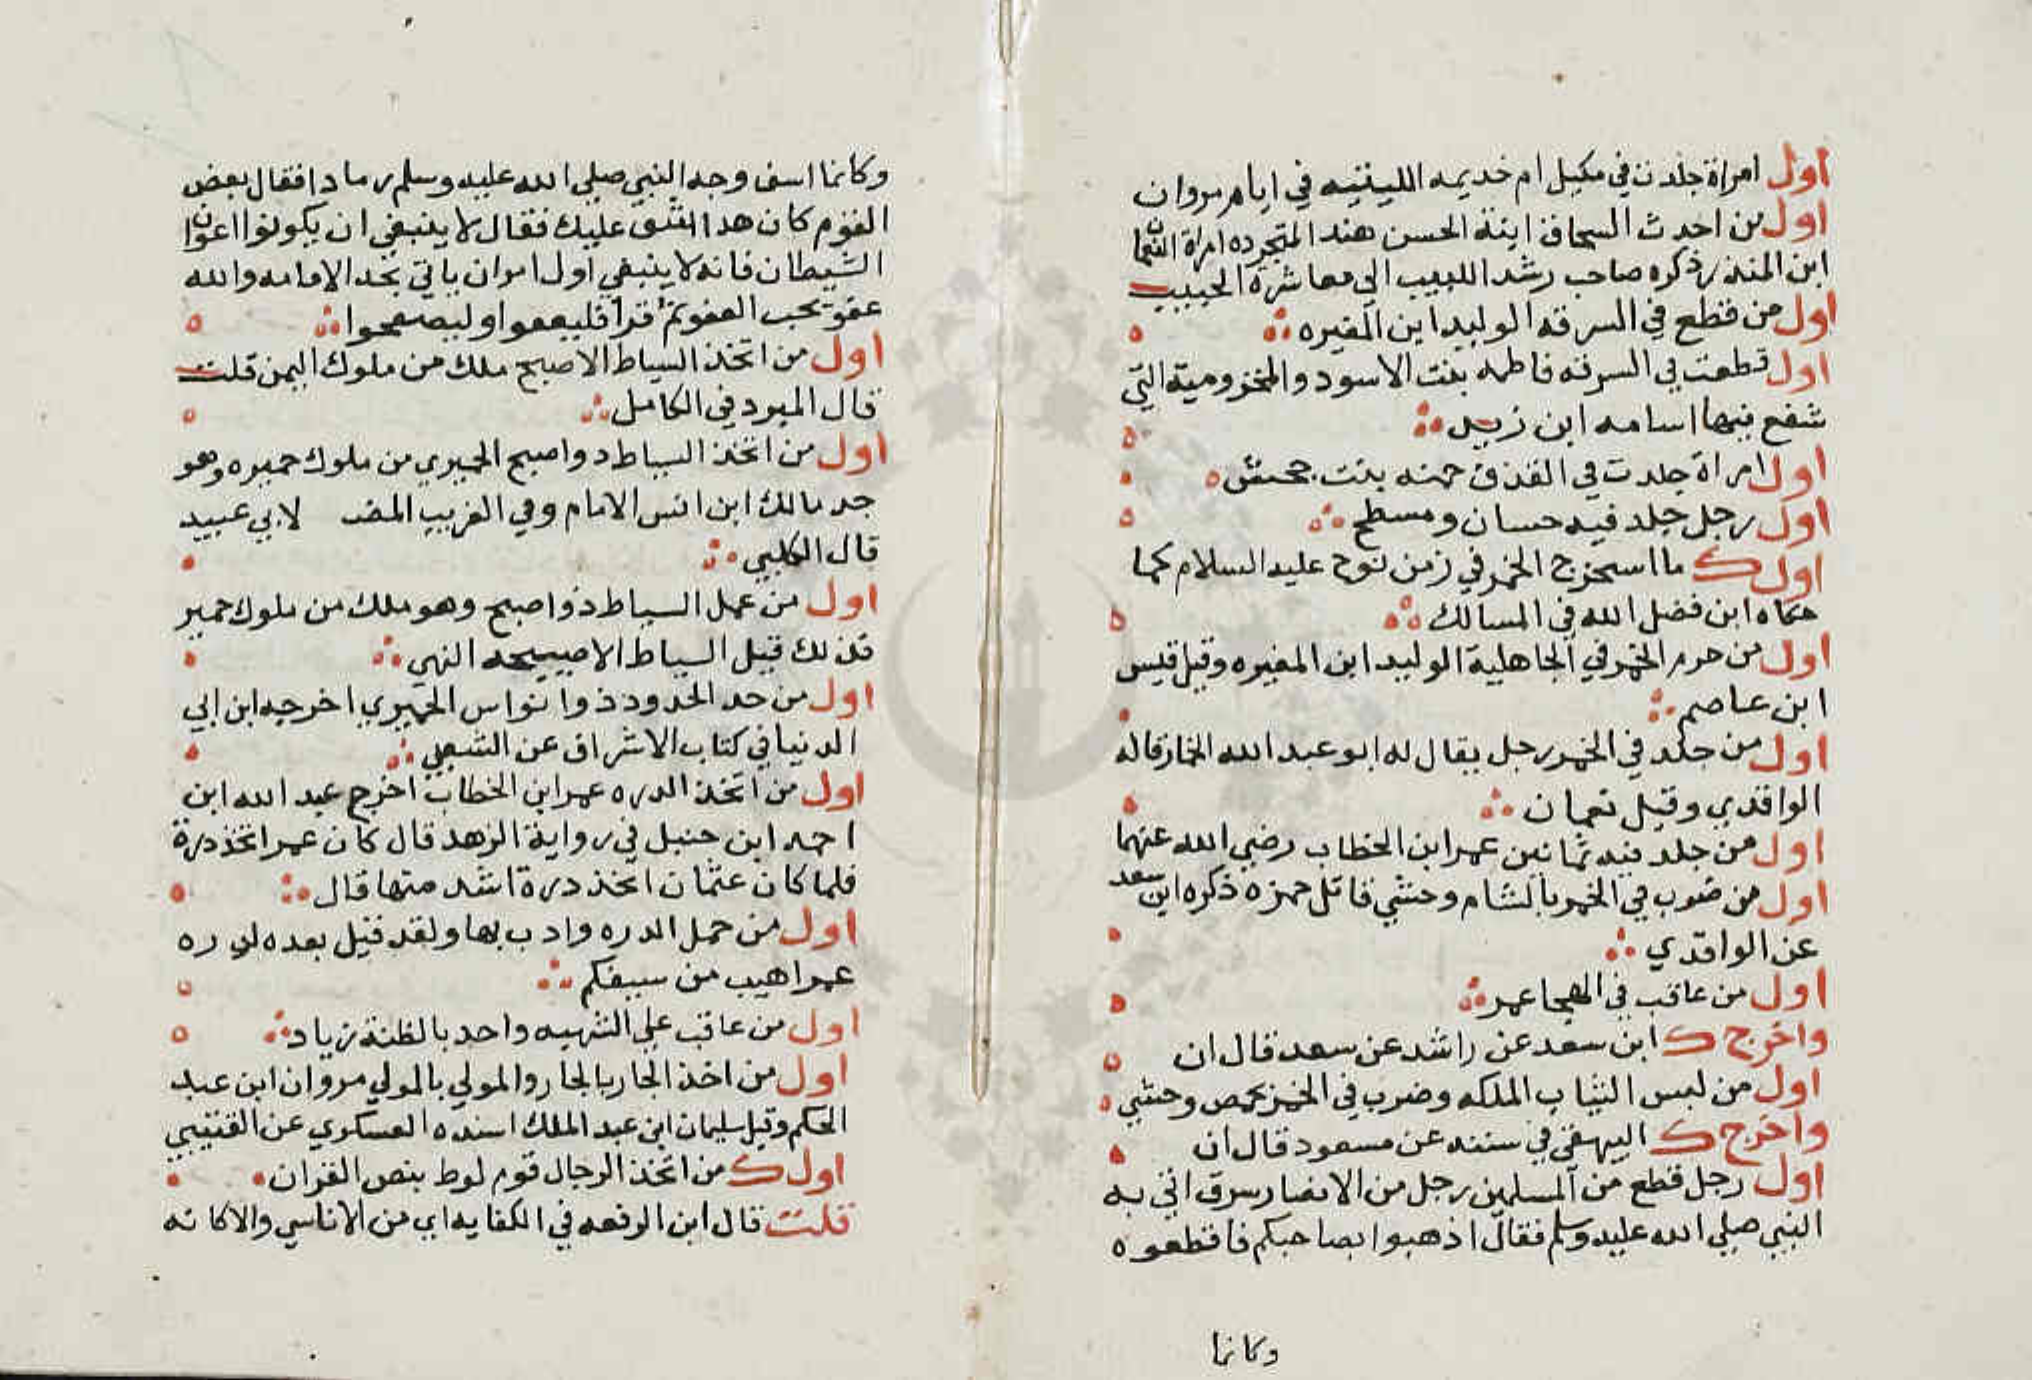 اول امراة جلدت في مكيل ام خديمه الليثيه في ايام مروان
اول من احدث السحاق ابنة الحسن هند المتجرده امراة النعمان
ابن المنذر ذكره صاحب رشد اللبيب الي معاشرة الحبيب
اول من قطع في السرقه الوليد ابن المغيره
اول قطعت في السرقه فاطمه بنت الاسود والمخزومية التي
شفع فيها اسامه ابن زيد
اول امراة جلدت في القذف حمنه بنت جحش
اول رجل جلد فيه حسان ومسطح
اول ك ما استخرج الخمر في زمن نوح عليه السلام كما
حكاه ابن فضل الله في المسالك
اول من حرم الخمر في الجاهلية الوليد ابن المغيره وقيل قيس
ابن عاصم
اول من جلد في الخمر رجل يقال له ابو عبد الله الخمار قاله
الواقدي وقيل نعمان
اول من جلد فيه ثمانين عمر ابن الخطاب رضي الله عنهما
اول من ضرب في الخمر بالشام وحشي قاتل حمزه ذكره ابن سعد
عن الواقدي
اول من عاقب في الهجا عمر
واخرج ك ابن سعد عن راشد عن سعد قال ان
اول من لبس الثياب الملكه وضرب في الخمر بحمص وحشي
واخرج ك البيهقي في سننه عن مسعود قال ان
اول رجل قطع من المسلمين رجل من الانصار سرق اتي به
النبي صلي الله عليه وسلم فقال اذهبوا بصاحبكم فاقطعوه
وكانما
وكانما اسف وجه النبي صلي الله عليه وسلم رمادا فقال بعض
القوم كان هدا الشق عليك فقال لا ينبغي ان يكونوا اعوان
الشيطان فانه لا ينبغي اول امران ياتي بحد الاقامه والله
عفو يحب العفو ثم قرا فليعفوا وليصفحوا
اول من اتخذ السياط الاصبح ملك من ملوك اليمن قلت
قال المبرد في الكامل
اول من اتخذ السياط دو اصبح الحميري من ملوك حميره وهو
جد مالك ابن انس الامام وفي الغريب المصـ لابي عبيد
قال الكلبي
اول من عمل السياط ذو اصبح وهو ملك من ملوك حمير
فذلك قيل السياط الاصبيحه انتهي
اول من حد الحدود ذوا نواس الحميري اخرجه ابن ابي
الدنيا في كتاب الاشراف عن الشعبي
اول من اتخذ الدره عمر ابن الخطاب اخرج عبد الله ابن
احمد ابن حنبل في رواية الزهد قال كان عمر اتخذ درة
فلما كان عثمان اتخذ درة اشد منها قال
اول من حمل الدره وادب بها ولقد قيل بعده لدره
عمر اهيب من سيفكم
اول من عاقب علي الشهبه واحد بالظنة زياد
اول من اخذ الجار بالجار والمولي بالمولي مروان ابن عبد
الحكم وقيل سليمان ابن عبد الملك اسنده العسكري عن القتيبي
اول ك من اتخذ الرجال قوم لوط بنص القران
قلت قال ابن الرفعه في الكفايه اي من الاناسي والا كانه